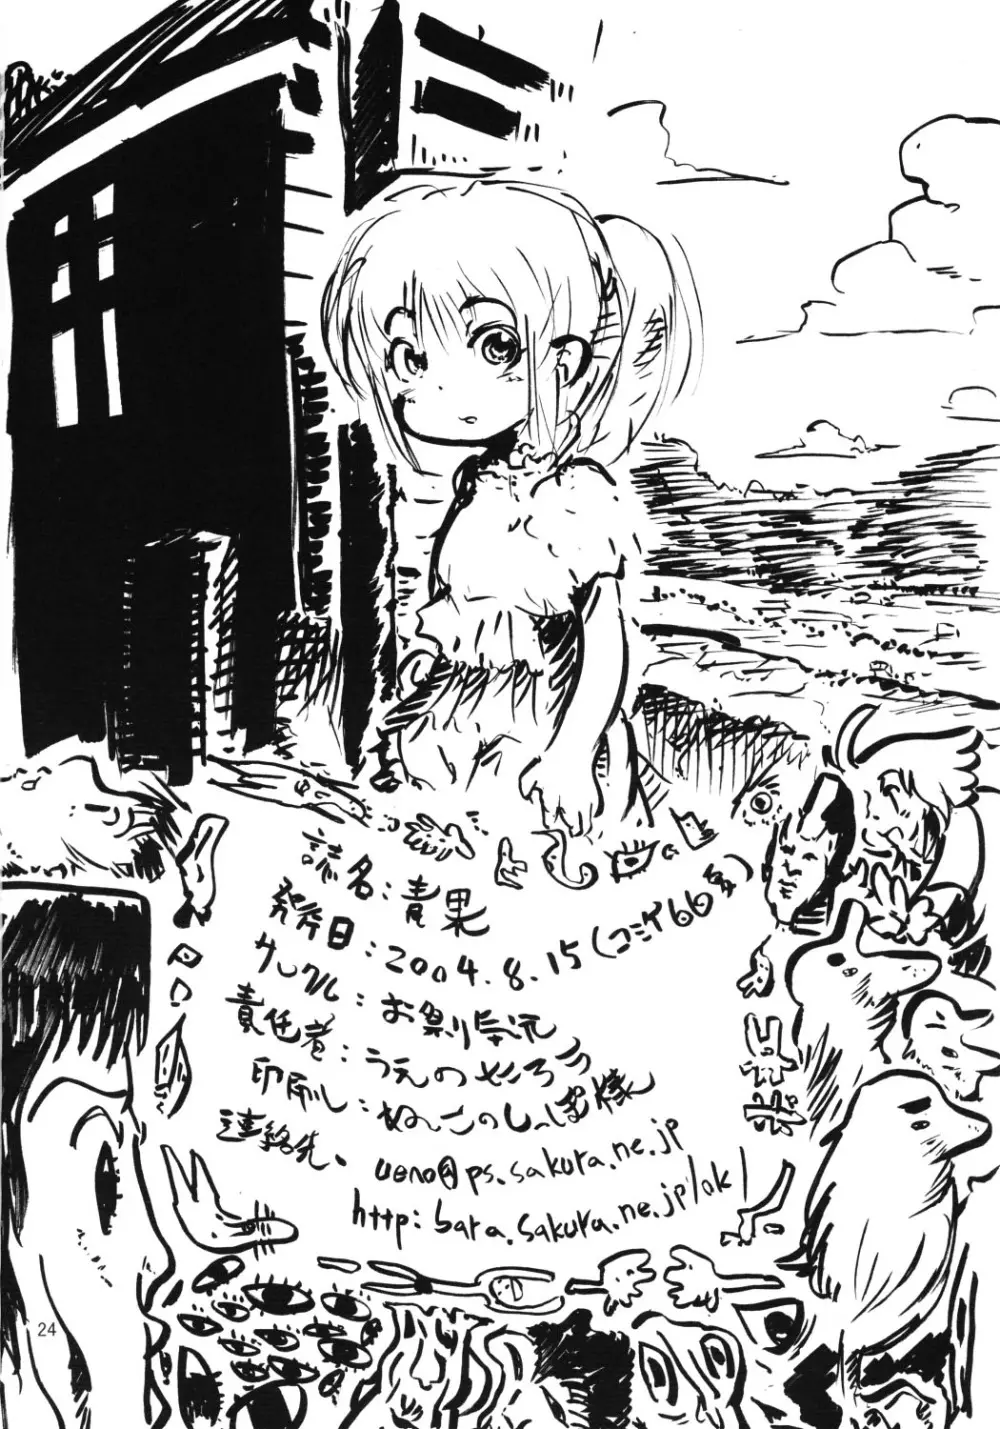 誌名:青果
発行日:2004.8.15(コミケ66夏)
サークル:お祭り本元
責任者:うえのせころう
印刷:ぬこのしっぽ様
連絡先、
ueno@ps.sakura.ne.jp
http:bara.sakura.ne.jp/ok/
24